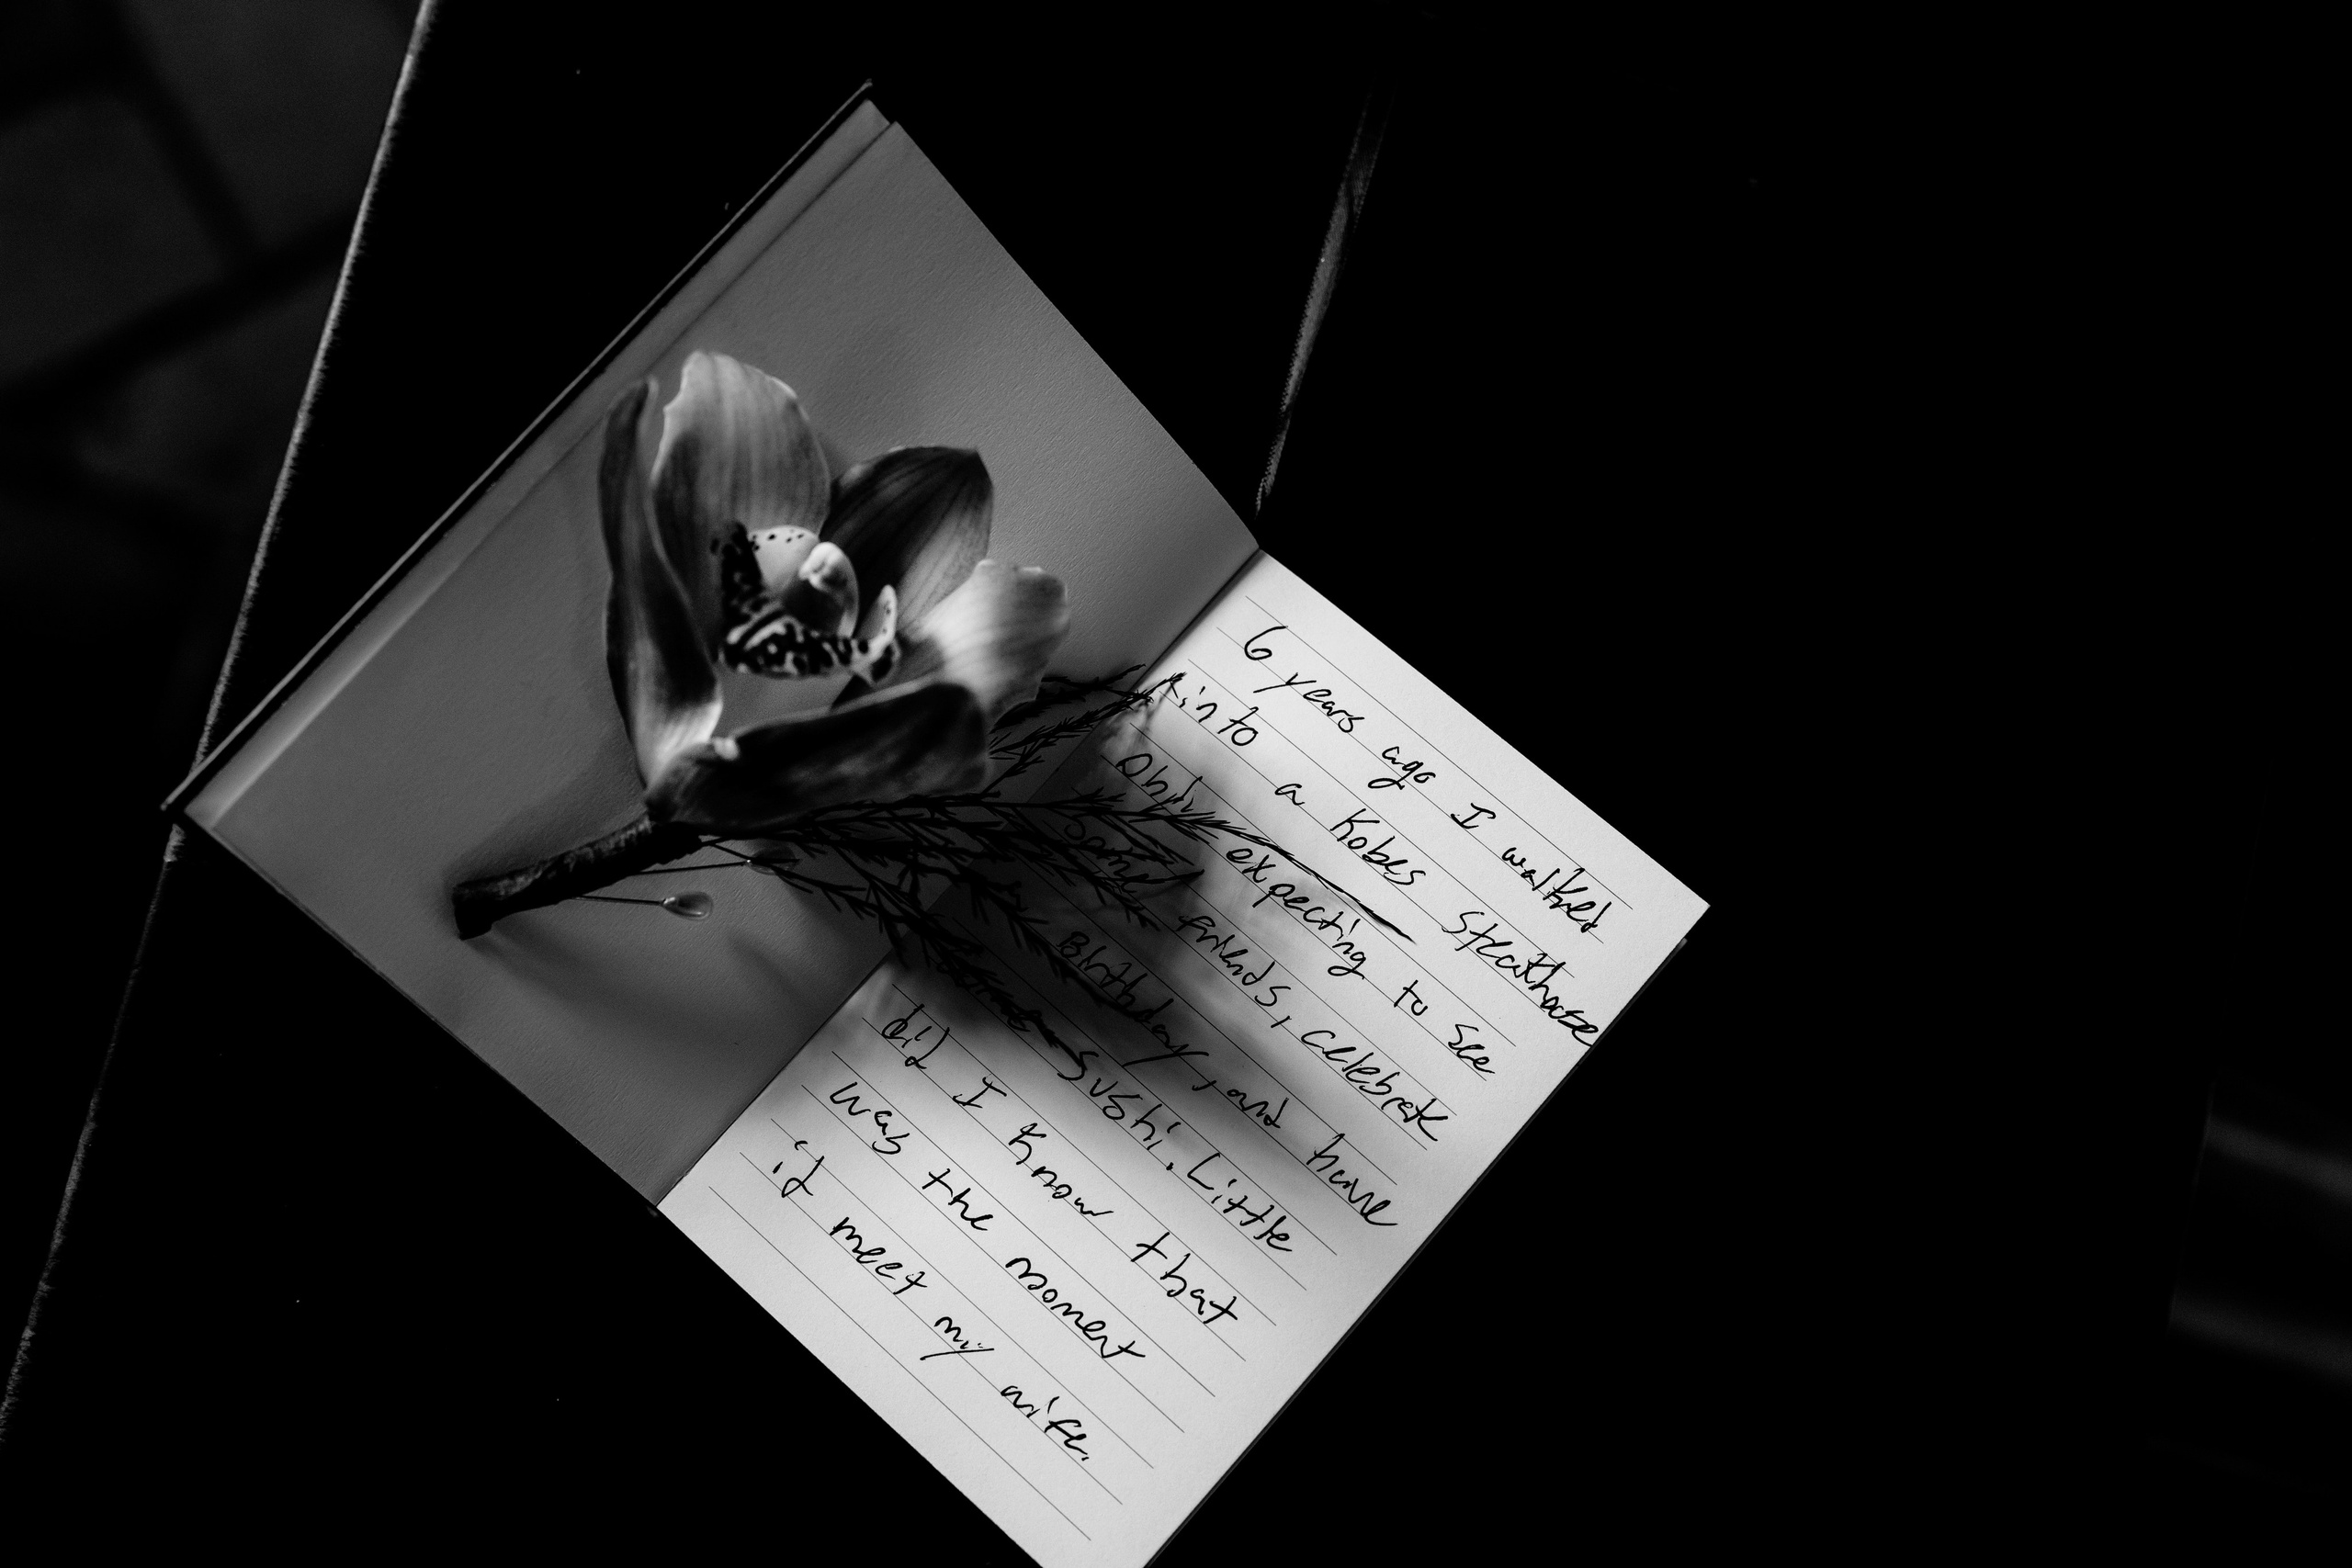 6 years ago I walked
into a Kobes Steakhouse
Only expecting to see
some friends, celebrate
Birthday, and have
Sushi. Little
did I know that
was the moment
i'd meet my wife.